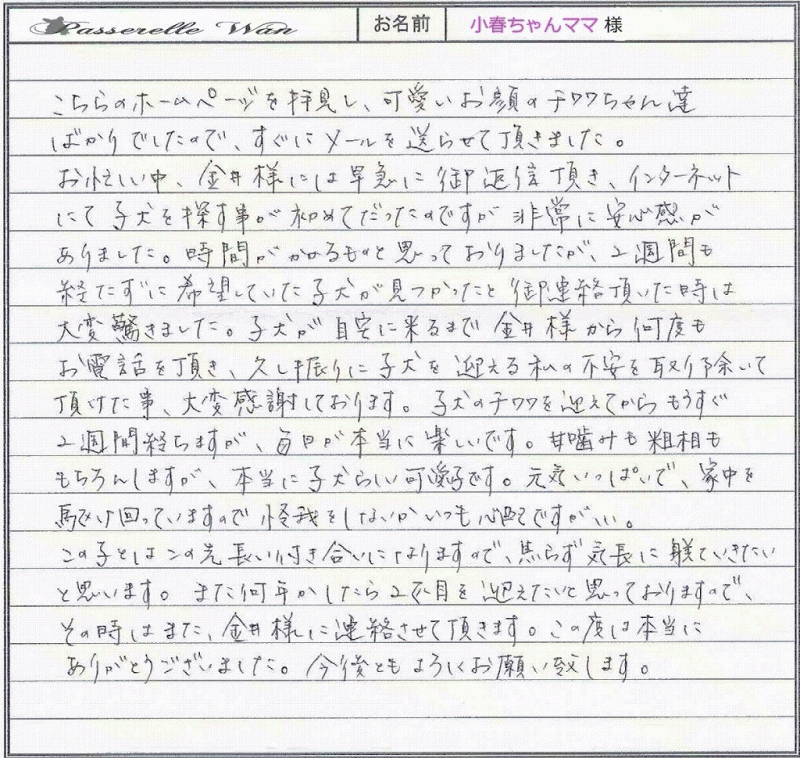 Passerelle Wan お名前 小春ちゃんママ 様
こちらのホームページを拝見し、可愛いお顔のチワワちゃん達
ばかりでしたので、すぐにメールを送らせて頂きました。
お忙しい中、金井様には早急に御返信頂き、インターネット
にて子犬を探す事が初めてだったのですが非常に安心感が
ありました。時間がかかるものと思っておりましたが、2週間も
経たずに希望していた子犬が見つかったと御連絡頂いた時は
大変驚きました。子犬が自宅に来るまで金井様から何度も
お電話を頂き、久し振りに子犬を迎える私の不安を取り除いて
頂けた事、大変感謝しております。子犬のチワワを迎えてからもうすぐ
2週間経ちますが、毎日が本当に楽しいです。甘噛みも粗相も
もちろんしますが、本当に子犬らしい可愛子です。元気いっぱいで、家中を
駆け回っていますので怪我をしないかいつも心配ですが…。
この子とはこの先長い付き合いになりますので、焦らず気長に躾ていきたい
と思います。また何年かしたら2匹目を迎えたいと思っておりますので、
その時はまた、金井様に連絡させて頂きます。この度は本当に
ありがとうございました。今後ともよろしくお願い致します。